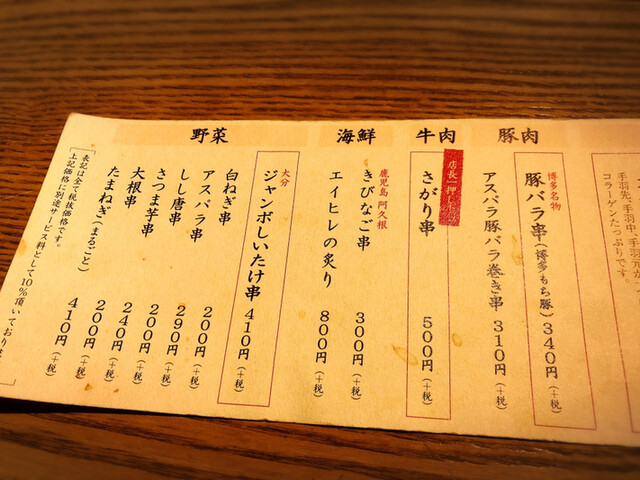 手羽先、手羽中、手羽元
コラーゲンたっぷりです。
豚肉
博多名物
豚バラ串(博多もち豚) 340円(+税)
アスパラ豚バラ巻き串 310円(+税)
牛肉
店長一押し
さがり串 500円(+税)
海鮮
鹿児島 阿久根
きびなご串 300円(+税)
エイヒレの炙り 800円(+税)
野菜
大分
ジャンボしいたけ串 410円(+税)
白ねぎ串 200円(+税)
アスパラ串 290円(+税)
しし唐串 200円(+税)
さつま芋串 240円(+税)
大根串 200円(+税)
たまねぎ(まるごと) 410円(+税)
表記は全て税抜価格です。
上記価格に別途サービス料として10%頂いておりま